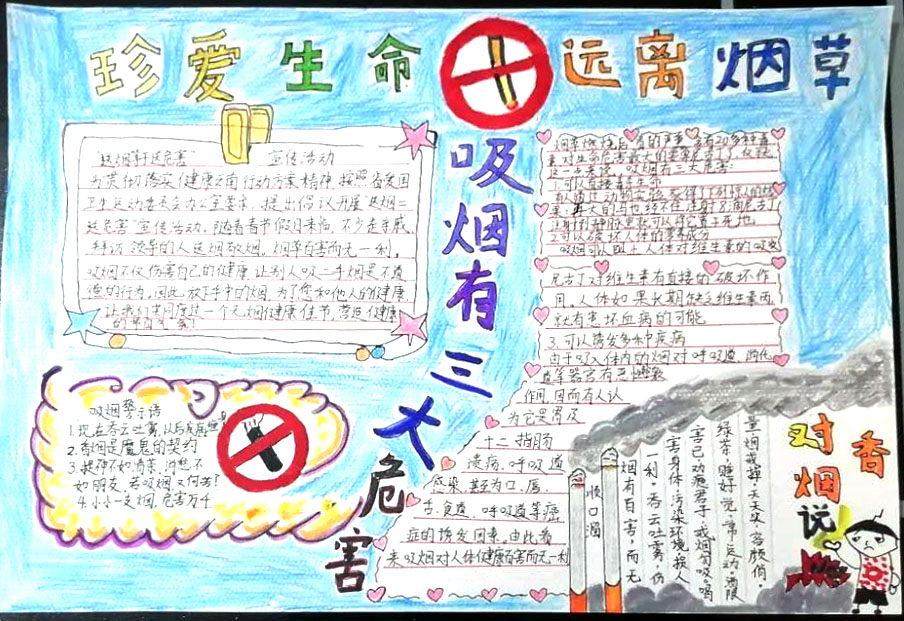 珍爱生命 远离烟草
吸烟有三大危害
"送烟等于送危害" 宣传活动
为贯彻落实健康云南行动方案精神,按照省爱国
卫生运动委员会办公室要求,提出倡议开展"送烟=
送危害"宣传活动。随着春节假日来临,不少走亲戚
拜访领导的人送烟敬烟。烟草百害而无一利,
吸烟不仅伤害自己的健康,让别人吸二手烟是不道
德的行为。因此,放下手中的烟,为了您和他人的健康
让我们共同度过一个无烟健康佳节,营造健康
的节日气氛!
吸烟警示语
1.现在吞云吐雾,以后
2.香烟是魔鬼的契约
3.提神不如清茶,消愁不
如朋友,若吸烟又何苦!
4.小小一支烟,危害万千
烟草燃烧后
吸烟有三大危害:
1.可以直接毒害生命
2.可以破坏人体的营养成分
吸烟可以阻止人体对维生素的吸收
尼古丁对维生素有直接的破坏作
用,人体如果长期缺乏维生素丙
就有患坏血病的可能
3.可以诱发多种疾病
由于吸入体内的烟对呼吸道、消化
道等器官有恶性刺激
作用,因而有人认
为它是胃及
十二指肠
溃疡、呼吸道
感染,甚至为口、唇、
舌、食道、呼吸道等癌
症的诱发因素。由此看
来吸烟对人体健康百害而无一利
对香烟说
量烟戒掉,天天笑,容颜俏。
绿茶,睡好觉,常运动,酒限
害己劝瘾君子,戒烟勿吸,喝
害身体,污染环境,损人
一利。吞云吐雾,伤
烟有百害,而无
顺口溜